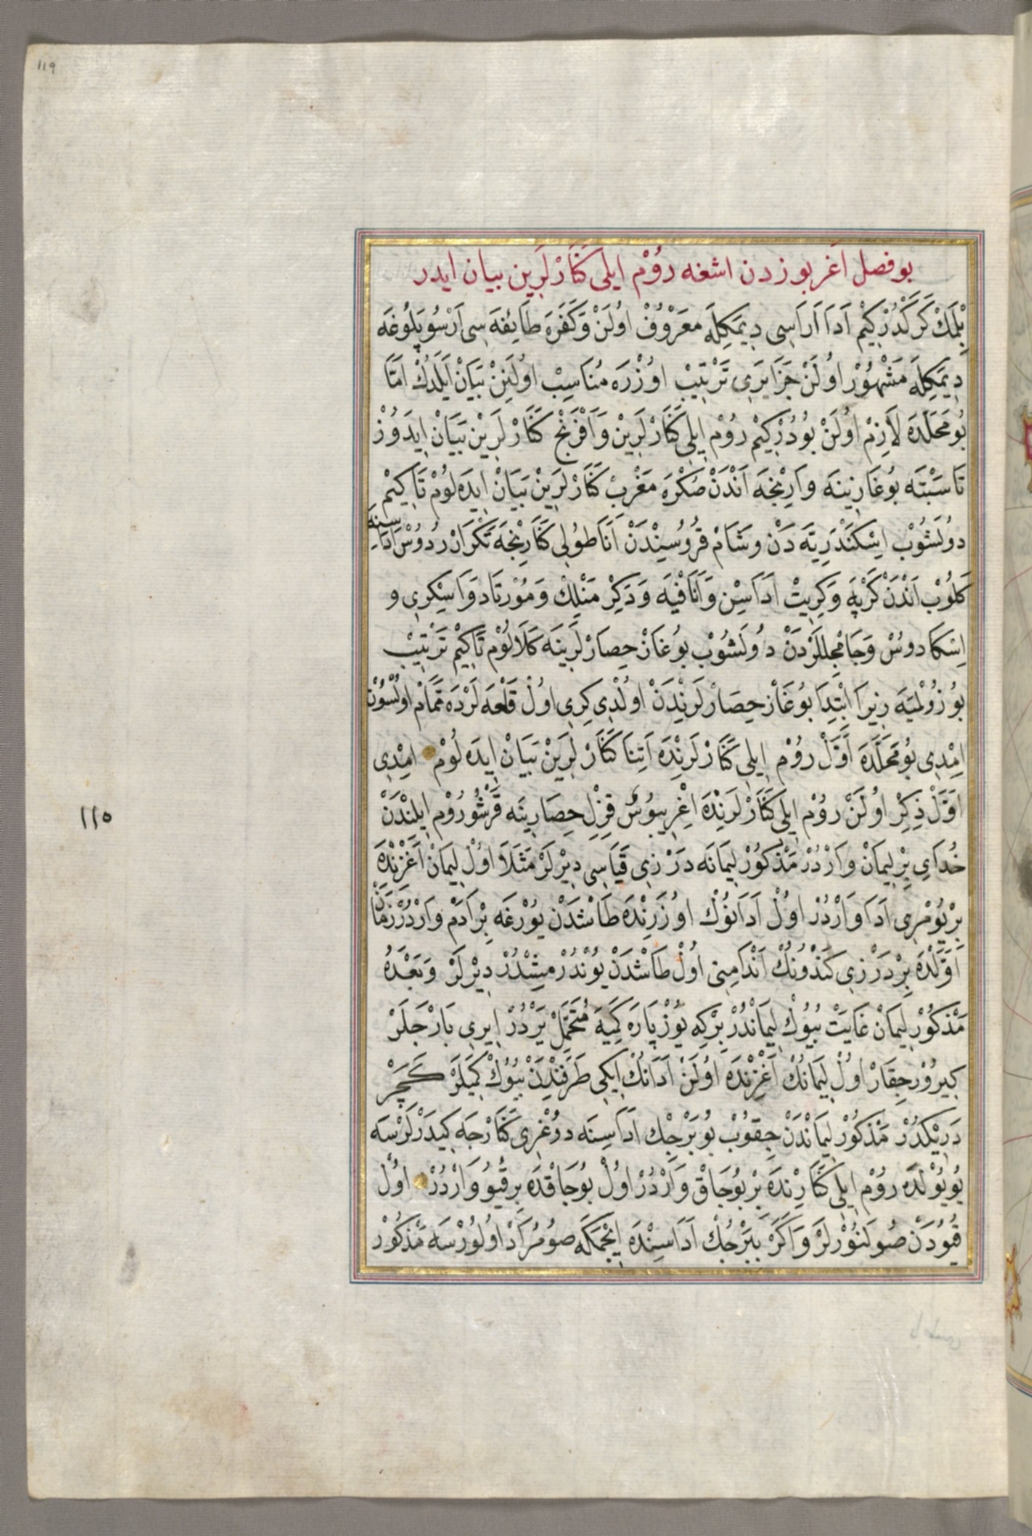 ١١٩
بو فصل اغربوزدن اشغه رُوْم ايلى كَنَارْلَرِين بيان ايدر
بِلْمَكْ كَرَكْدُرْكِيمْ اَدَا اَرَاسِى دِيمَكِلَه مَعْرُوُفْ اوُلَنْ وَكَفَرَه طَايِفَه سِى اَرْسُوپَلُوغَه
دِيمَكِلَه مَشْهُوُرْ اوُلَنْ جَزَايِرِى تَرْتِيبْ اوُزْرَه مُنَاسِبْ اوُلَنِنْ بَيَانْ اَيْلَدُكْ اَمَّا
بُو مَحَلْدَه لَازِمْ اوُلَنْ بُودُرْكِيمْ رُوُمْ ايلى كَنَارْلَرِينْ وَاَفْرَنْجْ كَنَارْلَرِينْ بَيَانْ ايدَوُزْ
تَا سَبْتَه بُوغَازِينَه وَارِنْجَه اَنْدَنْ صُكْرَه مَغْرِبْ كَنَارْلَرِينْ بَيَانْ ايدَه لُومْ تَا كِيمْ
دوُلَشُوبْ اِسْكَنْدَرِيَه دَنْ وشَامْ قُرُوسِينْدَنْ اَنَاطوُلى كَنَارِنْجَه تَكْرَارْ رُدُوُسْ اَدَاسِينَه
كَلُوبْ اَنْدَنْ كَرْپَه وَكِرِيتْ اَدَاسِنْ وَاَنَافْيَه وَدَكِرْمَنْلِكْ وَمُورْتَادْ وَاسِكِرِى و
اِسْكَادوُسْ وَجَامْجِللَرْدَنْ دوُلَشُوبْ بوُغَازْ حِصَارْلَرِينَه كَلَالُومْ تَا كِيمْ تَرْتِيبْ
بُوزُولْمَيَه زِيرَا اِبْتِدَا بوُغَازْ حِصَارْلَرِنْدَنْ اوُلْدِى كِرِى اوُلْ قَلْعَه لَرْدَه تَمَامْ اوُلْسُونْ
اِمْدِى بُو مَحَلْدَه اَوَّلْ رُوُمْ ايلى كَنَارْلَرِنْدَه كَنَارْلَرِينْ بَيَانْ ايدَه لُومْ اِمْدِى
اَوَّلْ ذِكِرْ اوُلَنْ رُوُمْ ايلى كَنَارْلَرِنْدَه اغْرِيبُوُسْ قِزِلْ حِصَارِينَه قَرْشُو رُوُمْ ايلِنْدَنْ
خُدَايِ بِرْ لِيمَانْ وَارْدُرْ مَذْكوُرْ لِيمَانَه دَرْزِى قَيَاسِى دِيرْلَرْ مَثَلَا اوُلْ لِيمَانْ اَغْزِنْدَه
بِرْ يُومْرِى اَدَا وَارْدُرْ اوُلْ اَدَانوُكْ اوُزَرِنْدَه طَاشْدَنْ يوُرْغَه بِرْ اَدَمْ وَارْدُرْ زَمَانْ
اَوَّلْدَه بِرْ دَرْزِى كَنْدُونُكْ اَنْدَامِنِى اوُلْ طَاشْدَنْ يوُنْدُرْمِشْدُرْ دِيرْلَرْ وَبَعْدَهُ
مَذْكوُرْ لِيمَانْ غَايَتْ بُيُوكْ لِيمَانْدُرْ بِرْكِه يوُزْ پَارَه كَمِيَه مُتَحَمِّلْ يَرْدُرْ ايرِى بَارْجَلَرْ
كِيرُوُرْ حِقَارْ اوُلْ لِيمَانُكْ اَغْزِنْدَه اوُلَنْ اَدَانُكْ ايكى طَرَفِنْدَنْ بُيُوكْ كَمِيلَرْ كَجَرْ
دَرِينْكَدُرْ مَذْكوُرْ لِيمَانْدَنْ چِقوُبْ بوُبَرْجِكْ اَدَاسِنَه دوُغْرِى كَنَارْجَه كِيدَرْلَرْسَه
بُو يوُلْدَه رُوُمْ ايلى كَنَارِنْدَه بِرْ بوُجَاقْ وَارْدُرْ اوُلْ بوُجَاقْدَه بِرْ قُيُو وَارْدُرْ اوُلْ
قُيوُدَنْ صُو اَلنُورْلَرْ وَاَكَرْ بَبَرْجُكْ اَدَاسِنْدَه اِيچْمَكَه صوُ مُرَادْ اوُلوُرْسَه مَذْكوُرْ
١١٥